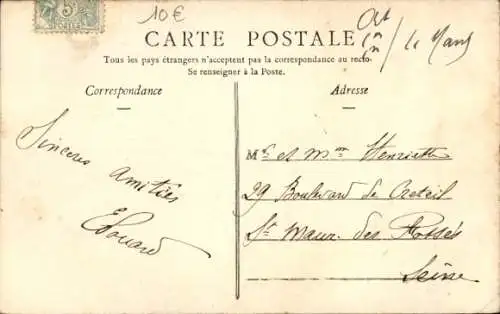 5c
10€
CARTE POSTALE
Le Mans
Tous les pays étrangers n'acceptent pas la correspondance au recto.
Se renseigner à la Poste.
Correspondance
Adresse
Sincères
amitiés
Edouard
Mr et Mme Henriette
29 Boulevard de Creteil
St Maur des Fossés
Seine